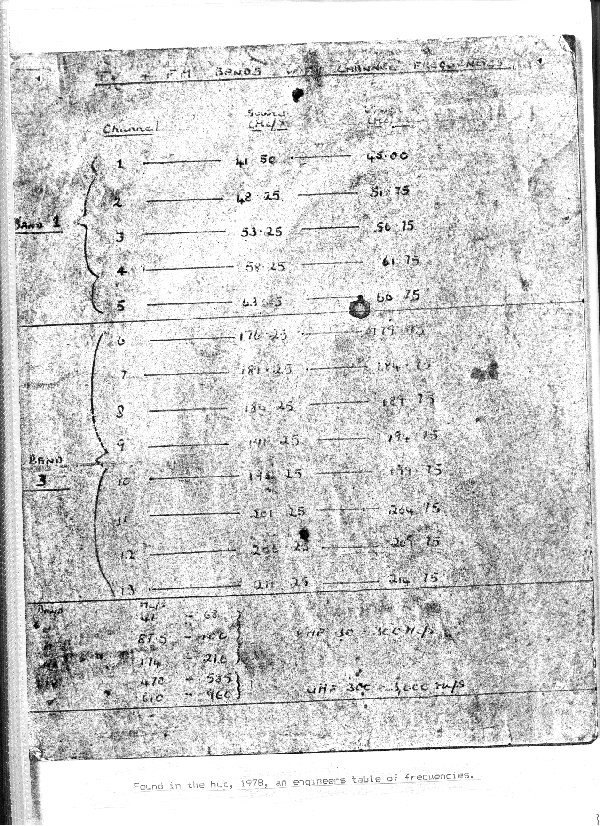 TV + FM BANDS WITH CHANNEL FREQUENCIES
Channel Sound (Mc/s)
1 41 50 45.00
2 48 25 51 75
BAND 1
3 53.25 56 75
4 58.25 61 75
5 63 25 66 75
6 176 25 179 75
7 181.25 184 75
8 186 25 189 75
9 191 25 194 75
BAND
3
10 196 25 199 75
11 201 25 204 75
12 206 25 209 75
13 211 25 214 75
BAND Mc/s
41 - 68
87.5 - 100 VHF 30 - 300 Mc/s
174 - 216
470 - 585 UHF 300 - 3000 Mc/s
610 - 960
Found in the hut, 1978, an engineers table of frequencies.